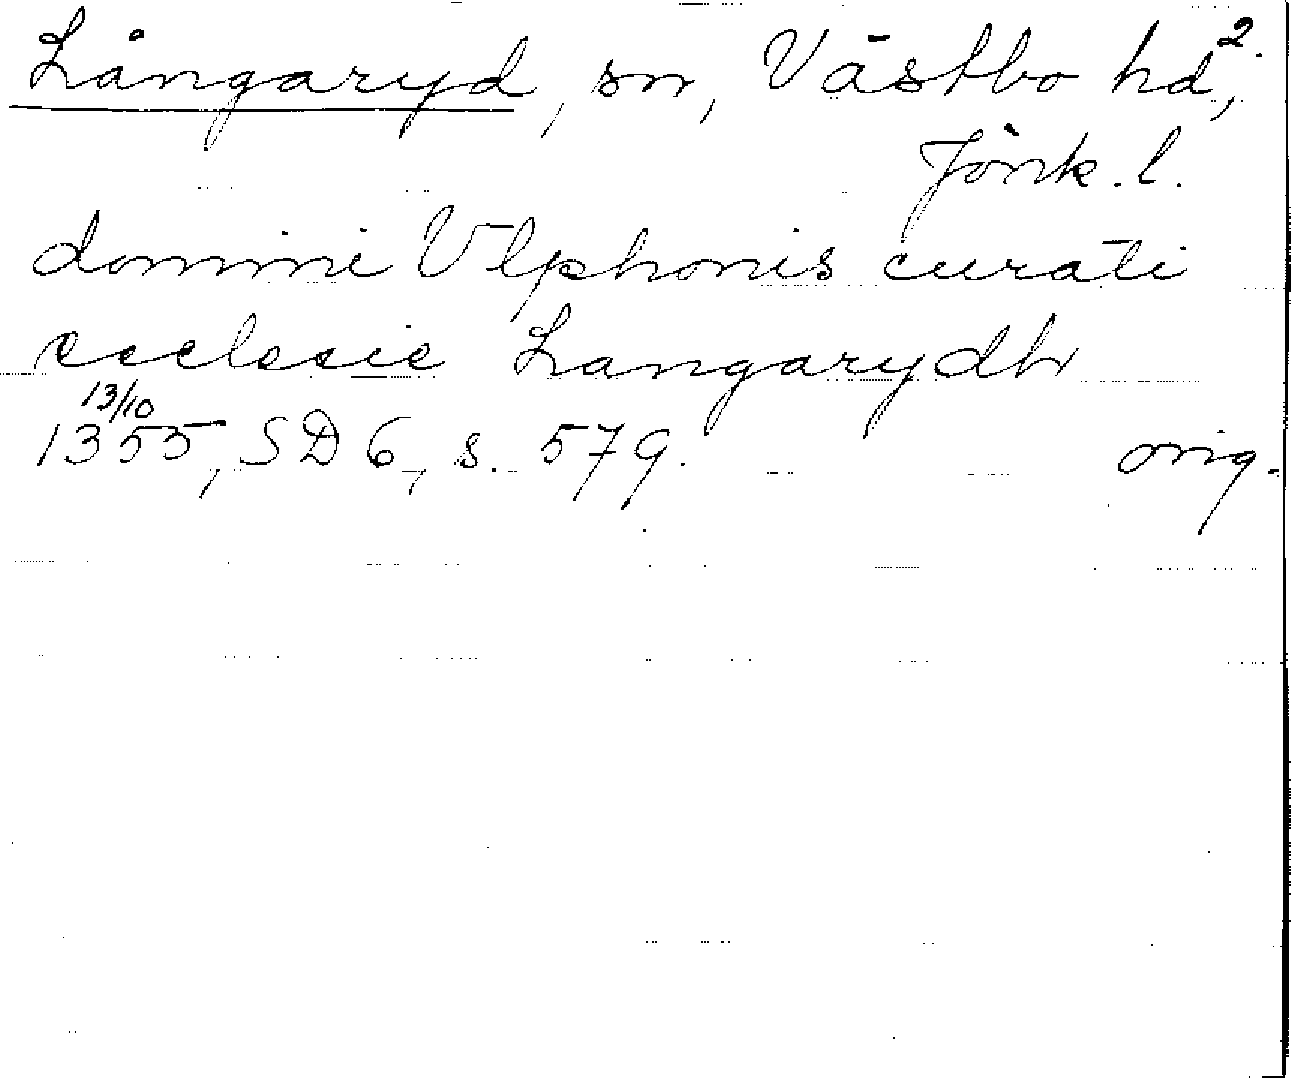 Långaryd, sn, Västbo hd, 2.
Jönk. l.
domini Vlphonis curati
ecclesie Langarydh
13/10
1355, SD 6, s. 579. orig.